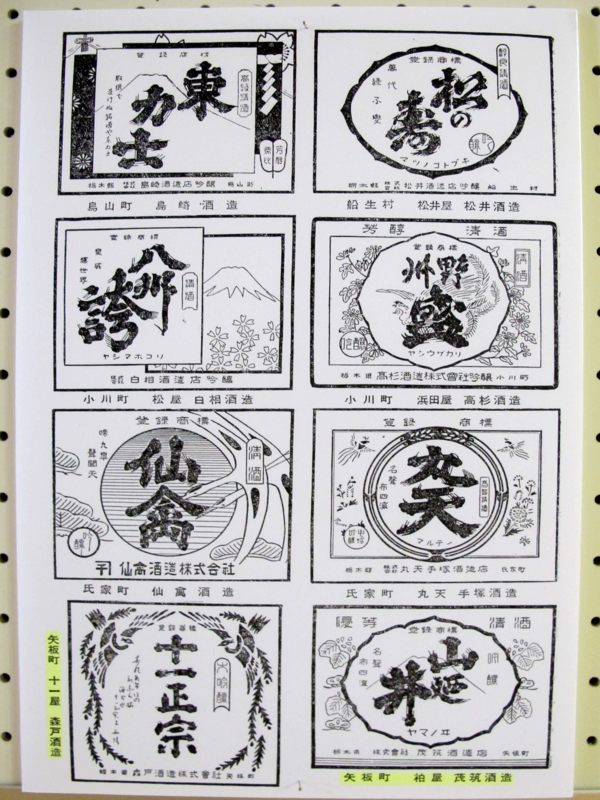 登録商標
東力士
高級清酒
芳醇無比
栃木縣 株式會社 島崎酒造店吟釀 烏山町
烏山町 島崎酒造
登録商標
醇良清酒
萬代
緑予愛
松の寿
吟醸
マツノコトブキ
栃木縣 株式會社 松井酒造店吟醸 船生村
船生村 松井屋 松井酒造
登録商標
八州誇
清酒
ヤシマホコリ
株式會社 白相酒造店吟醸
小川町 松屋 白相酒造
芳醇 清酒
登録商標
野州盛
清酒
吟醸
ヤシウザカリ
栃木縣 高杉酒造株式會社吟醸 小川町
小川町 浜田屋 高杉酒造
登録商標
味九皐
聲聞天
仙禽
清酒
仙禽酒造株式会社
氏家町 仙禽酒造
登録 商標
名聲布四濱
丸天
高級清酒
マルテン
栃木縣 株式會社 丸天手塚酒造店 氏家町
氏家町 丸天 手塚酒造
登録商標
十一正宗
大吟醸
栃木縣 森戸酒造株式會社 矢板町
矢板町 十一屋 森戸酒造
優芳 清酒
登録商標
名聲布四濱
山廼井
吟醸
ヤマノヰ
栃木縣 株式會社 茂筑酒造店 矢板町
矢板町 柏屋 茂筑酒造